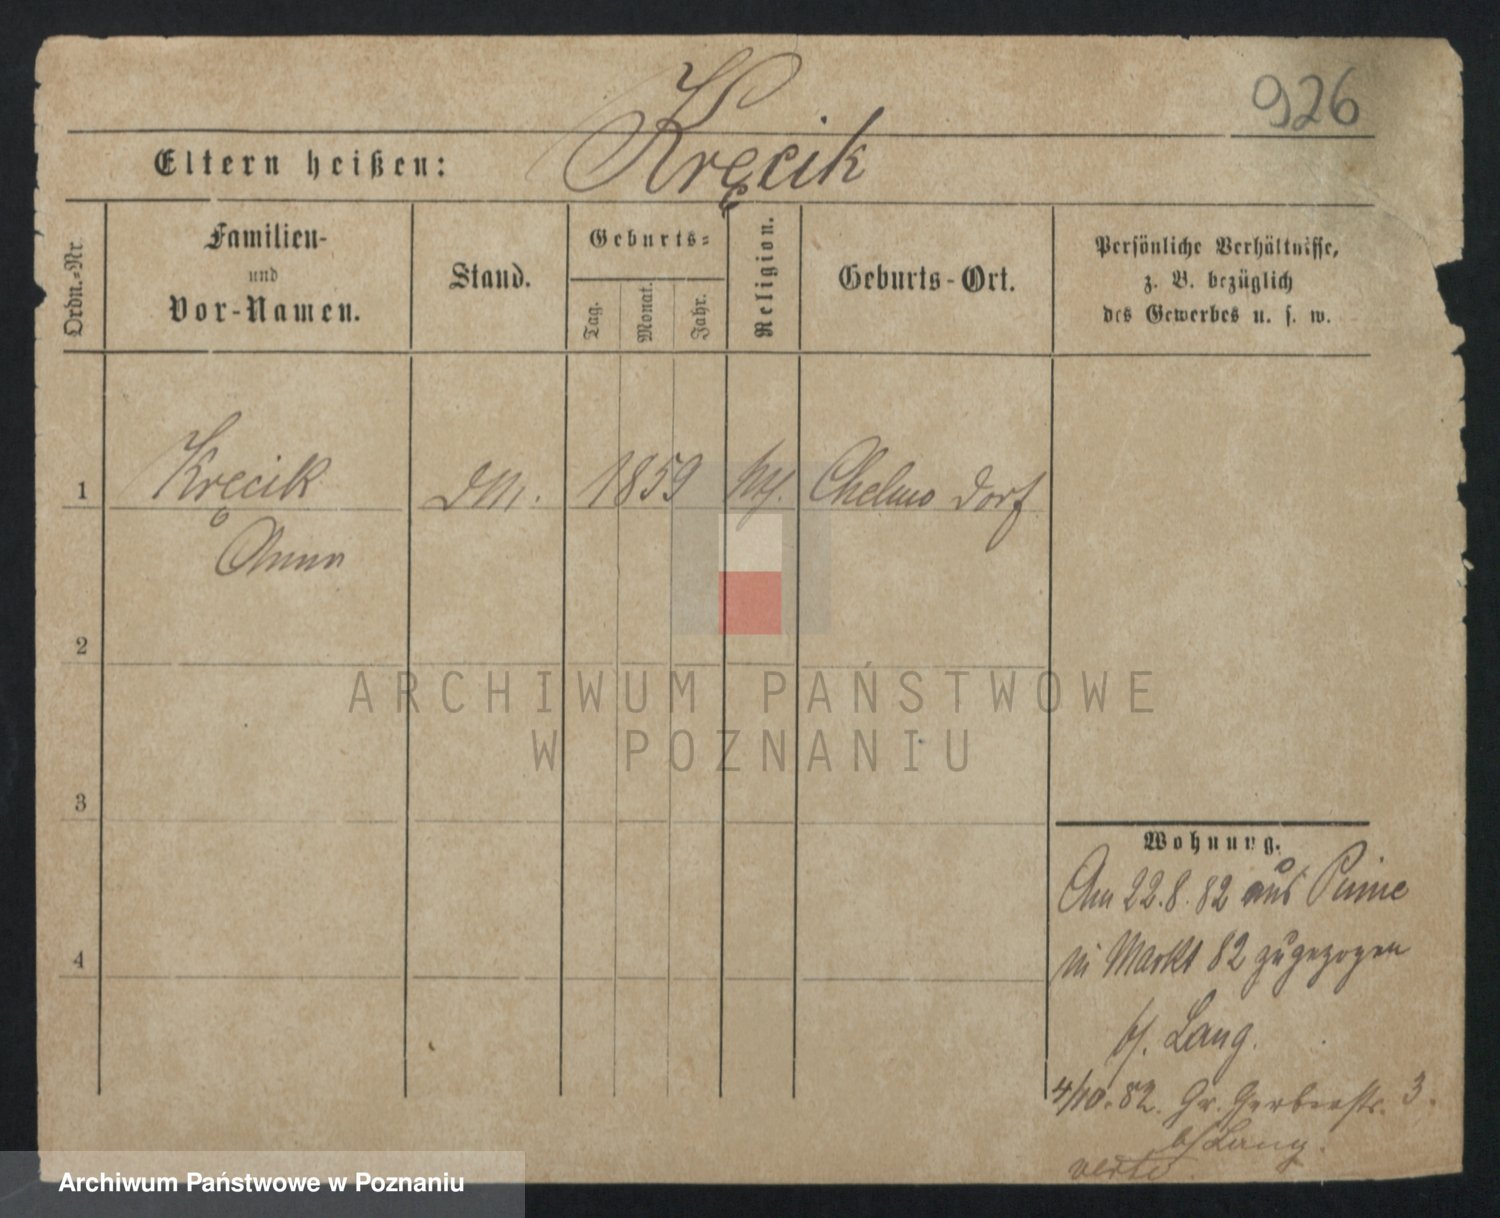 926
Kręcik
Eltern heißen:
Ordn.-Nr.
Familien-
und
Vor-Namen.
Stand.
Geburts-
Tag.
Monat.
Jahr.
Religion.
Geburts-Ort.
Persönliche Verhältnisse,
z. B. bezüglich
des Gewerbes u. s. w.
1 Kręcik DM. 1859 Chelmo Dorf
Anna
2
ARCHIWUM PAŃSTWOWE
W POZNANIU
3
4
Wohnung.
Am 22.8.82 aus Pinne
in Markt 82 zugezogen
b/. Lang.
4/10.82. Gr. Gerberstr. 3.
b/ Lang.
verte
Archiwum Państwowe w Poznaniu